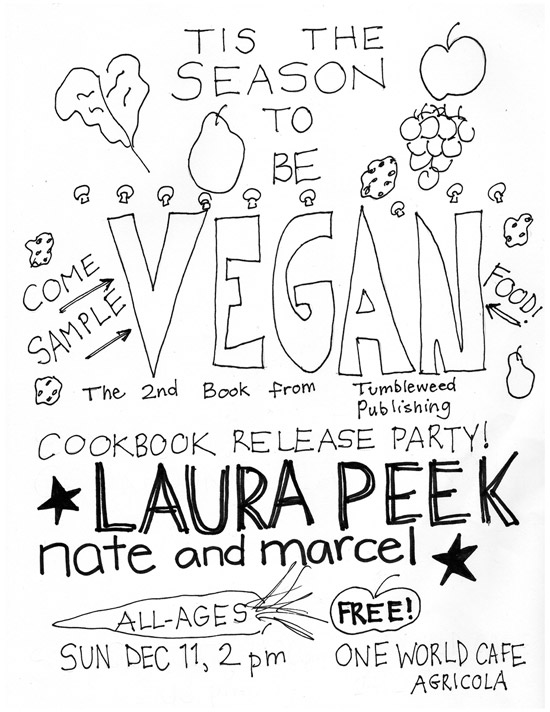 TIS THE
SEASON
TO
BE
VEGAN
COME
SAMPLE
FOOD!
The 2nd Book from Tumbleweed
Publishing
COOKBOOK RELEASE PARTY!
LAURA PEEK
nate and marcel
ALL-AGES
FREE!
SUN DEC 11, 2 pm
ONE WORLD CAFE
AGRICOLA